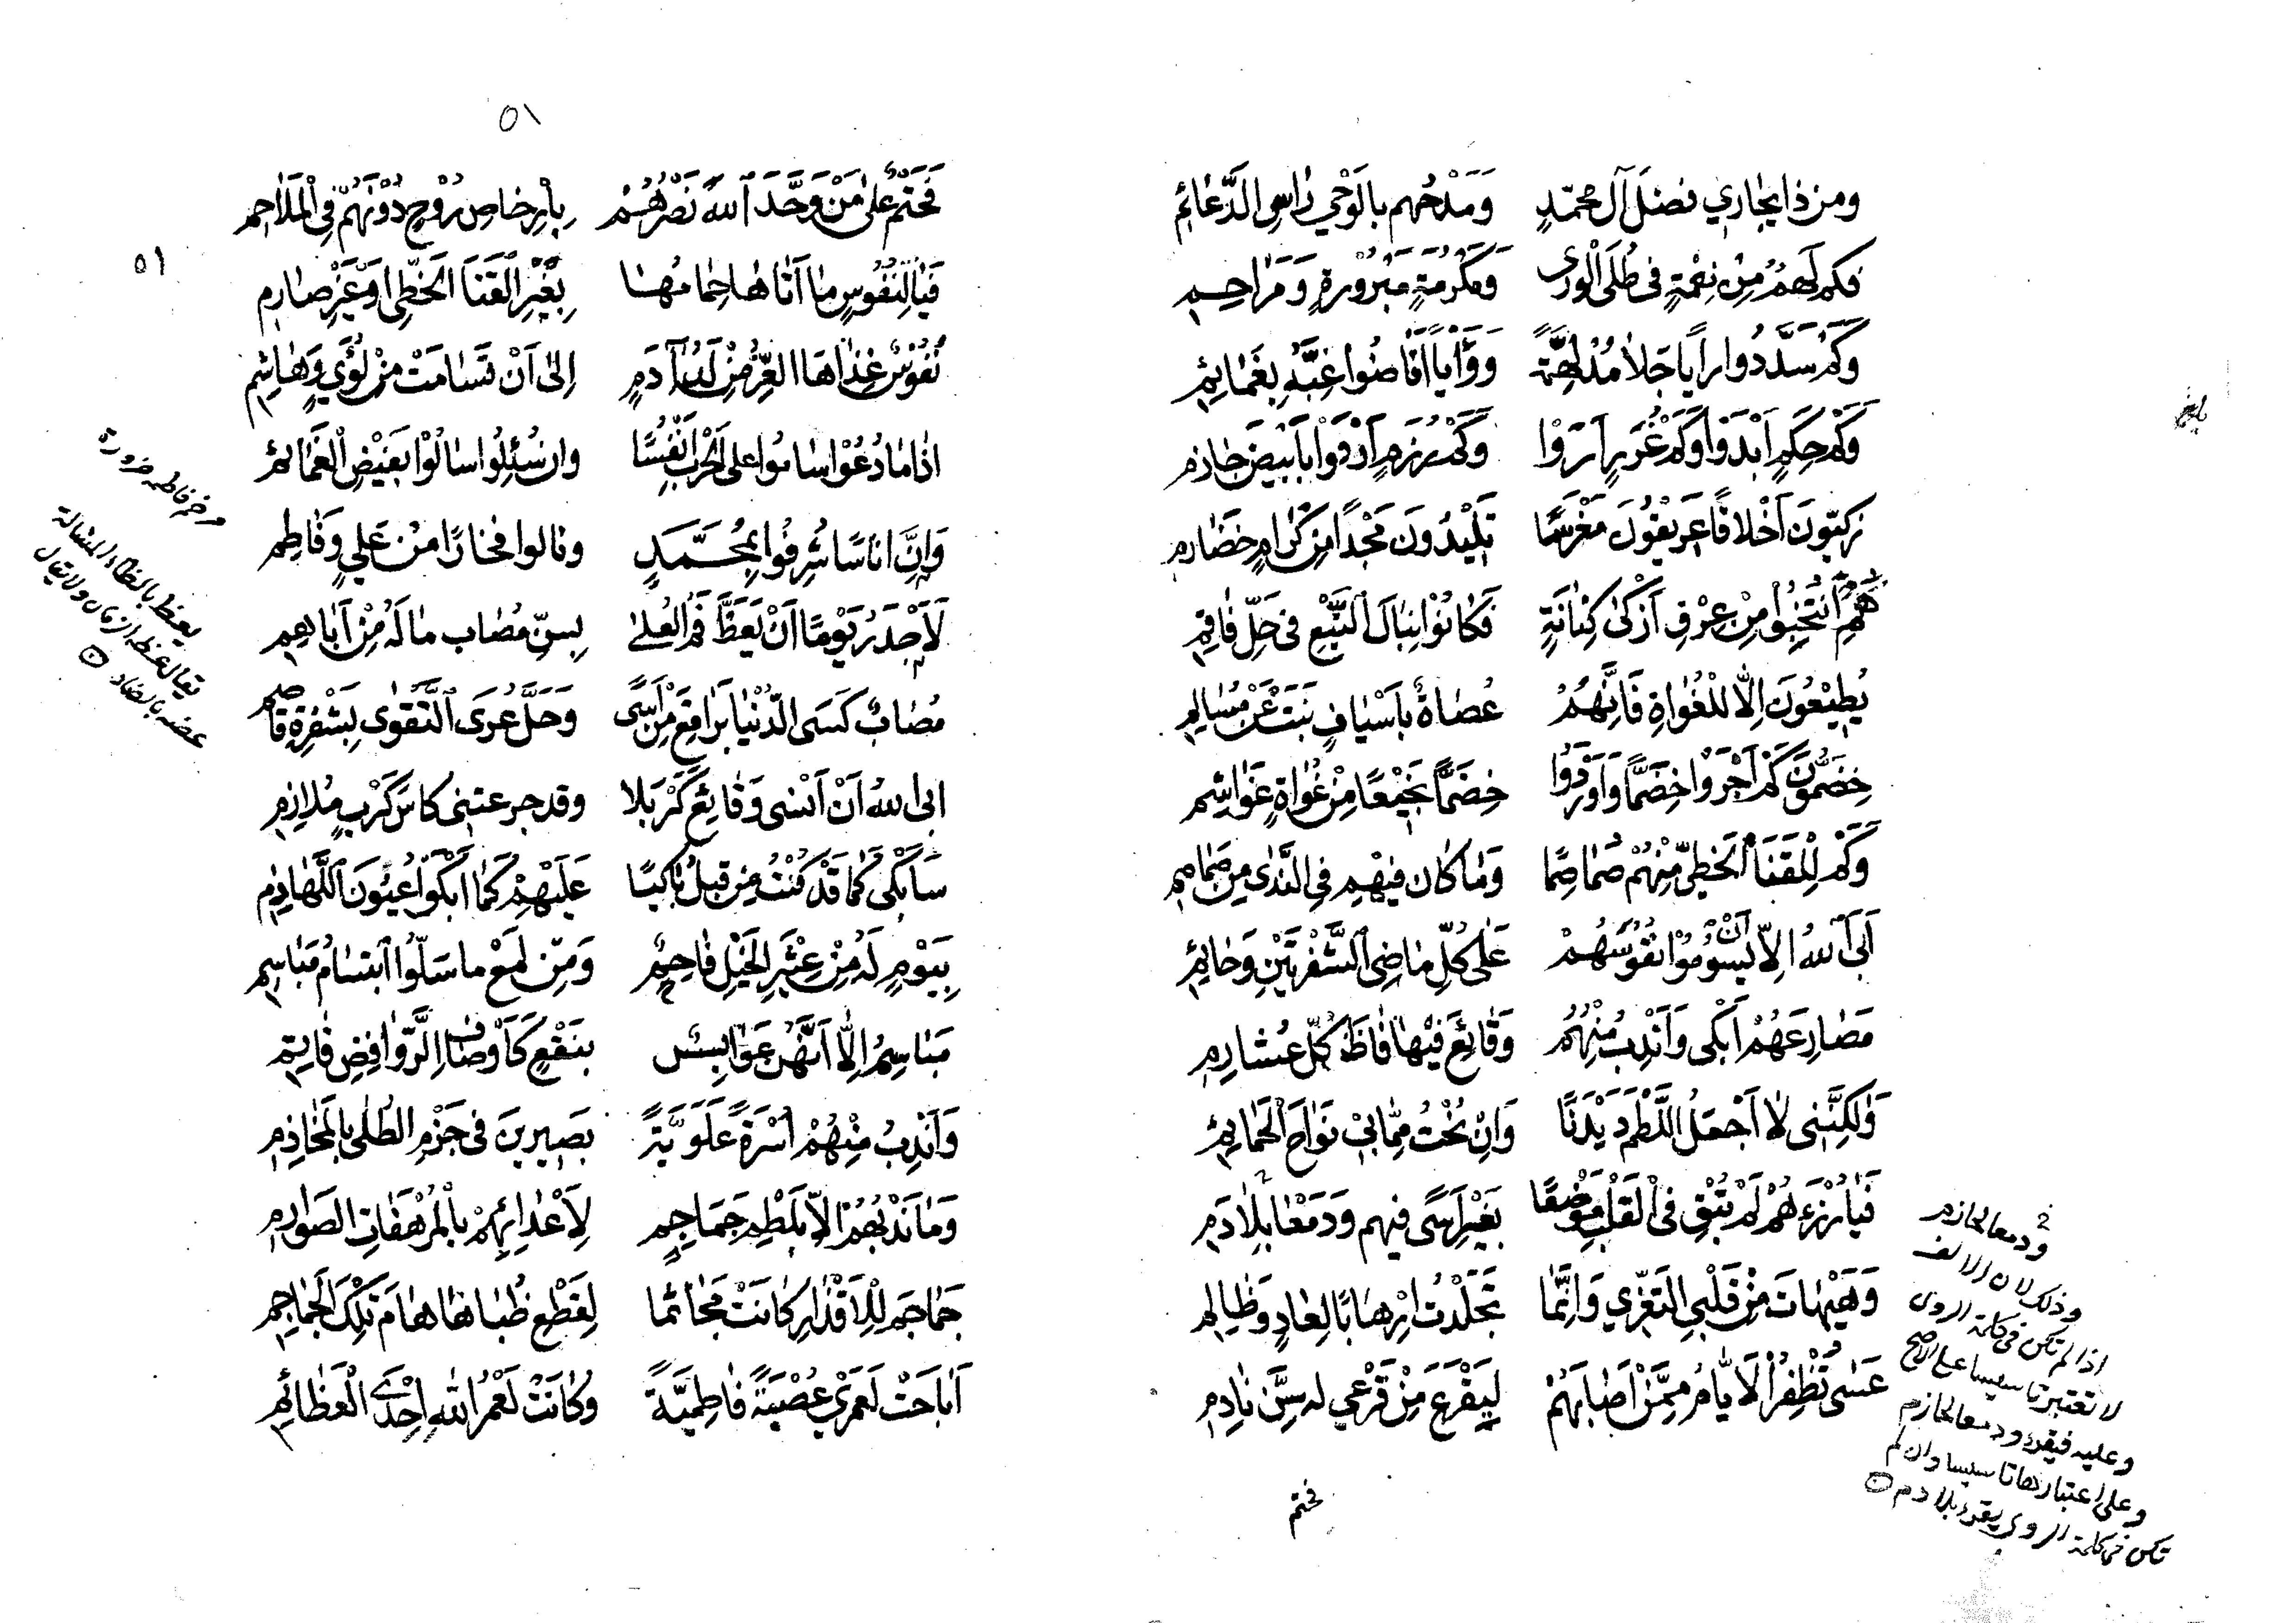 ومن ذا يجاري فضل آل محمد وَمَدْحُهم بالوَحْيِ رَاسِي الدَّعَائم
فكم لَهُمُ مِنْ نِعْمَةٍ في طُلَى الْوَرَى وَمَكْرُمَةٍ مَبْرُورَةٍ وَمَرَاحِم
وَكَمْ سَدَّدُوا رَأيًا جَلا مُدْلَهِمَّةً وَرَايًا أَفَاضُوا غِبَّهُ بِغَمَائِمِ
وَكَمْ حِكَمٍ أَبْدَوْا وَكَمْ غُرَرٍ أَرَوْا وَكَمْ رُزَمٍ أَرْدَوْا بِأَبْيَضَ حَاذِمِ
زَكِيّونَ أَخْلاقًا عَرِيقُونَ مَغْرَسًا تَلِيْدُونَ مَجْدًا مِنْ كِرَامٍ خَضَارِمِ
هُمُ انْتُخِبُوا مِنْ عِرْقِ أَزْكَى كِنَانَةٍ فَكَانُوا نِبَالَ النَّبْعِ في حَلِّ فَاقِمِ
يُطِيْعُونَ إِلَّا لِلْغُوَاةِ فَإِنَّهُمْ عُصَاةٌ بِأَسْيَافٍ نَبَتْ عَنْ مُسَالِمِ
خِضَمُّونَ كَمْ أَجْرَوْا خِضَمًّا وَأَوْرَدُوا خِضَمًّا نَجِيْعًا مِنْ غُوَاةٍ غَوَاشِمِ
وَكَمْ لِلْقَنَا الْخَطِّيِّ مِنْهُمْ صُمَاصِمًا وَمَا كَانَ فِيْهِم فِي النَّدَى مِن صُمَاصِمِ
أَبَى اللهُ إِلَّا أَنْ يَسُوْمُوْا نُفُوْسَهُمْ عَلَى كُلِّ مَاضِي الشَّفْرَتَيْنِ وَحَائِمِ
مَصَارِعَهُمْ أَبْكِي وَأَنْدُبُ مِنْهُمُ وَقَائِعَ فِيْهَا فَاظَ كُلُّ عُشَارِمِ
وَلَكِنَّنِي لَا أَجْعَلُ اللَّطْمَ دَيْدَنًا وَإِنْ نُحْتُ مِمَّا بِيْ نَوَاحَ الْحَمَائِمِ
فَيَا رُزْءَهُمْ لَمْ تُبْقِ فِي الْقَلْبِ مَوْضِعًا بِغَيْرِ أَسًى فيهم وَدَمْعًا بِلَا دَمِ
وَهَيْهَاتَ مِنْ قَلْبِي التَعَزِّي وَإِنَّمَا تَجَلَّدْتُ إِرْهَابًا لِعَادٍ وَظَالِمِ
عَسَى تُظْفِرُ الْأَيَّامُ مِمَّنْ أَصَابَهُمْ لِيَقْرَعَ مِنْ قَرْعِي له سِنَّ نَادِمِ
فحتم
ودمعا لحازم
وذلك لان الالف
اذا لم تكن في كلمة الروى
لا تعتبر تاسيسا على الاصح
وعليه فيقرء ودمعا لحازم
وعلى اعتبارها تاسيسا وان لم
تكن في كلمة الروى يقرء بلا دم
٥١
٥١
فَحَتْمٌ عَلَى مَنْ وَحَّدَ اللهَ نَصْرُهُمْ بِإِرْخَاصِ رُوْحٍ دُوْنَهُمْ فِي الْمَلَاحِمِ
فَيَا لِنُفُوسٍ مَا أَتَاهَا حِمَامُهَا بِغَيْرِ الْقَنَا الْخَطِّي أَوْ غَيْرِ صَارِمِ
نُفُوْسٌ غِذَاهَا الْعِزُّ مِنْ لَدُ آدَمٍ إِلَى أَنْ تَسَامَتْ مِنْ لُؤَيٍّ وَهَاشِمِ
إِذَا مَا دُعُوْا سَامُوا عَلَى الْحَرْبِ أَنْفُسًا وإن سُئِلُوا سَالُوْا بِفَيْضِ الْغَمَائِمِ
وَإِنَّ أُنَاسًا شُرِّفُوا بِمُحَمَّدٍ ونالوا فخارًا مِنْ عَلِيٍّ وَفَاطِمِ
لَأَجْدَرُ يَوْمًا أَنْ يَعَظَّ فَمُ الْعُلَى بِسِنِّ مُصَابٍ مَا لَهُ مِنْ أَبَاهِمِ
مُصَابٌ كَسَى الدُّنْيَا بَرَاقِعَ مِنْ أَسًى وَحَلَّ عُرَى التَّقْوَى بِشَفْرَةِ قَاصِمِ
ابى اللهُ أَنْ أَنْسَى وَقَائِعَ كَرْبَلَا وقد جرعتني كَاسَ كَرْبٍ مُلَازِمِ
سَأَبْكِي كَمَا قَدْ كُنْتُ مِنْ قَبْلُ بَاكِيًا عَلَيْهِمْ كَمَا أَبْكَوْا عُيُونَ اللَّهَاذِمِ
بِيَوْمٍ لَهُ مِنْ عِثْيَرِ الْخَيْلِ فَاحِمٌ وَمِنْ لَمْعِ مَا سَلُّوا ابْتِسَامُ مَبَاسِمِ
مَبَاسِمُ إِلَّا أَنَّهُنَّ عَوَابِسٌ بِنَقْعٍ كَأَوْصَافِ الرَّوَافِضِ قَاتِمِ
وَأَنْدُبُ مِنْهُمْ أُسْرَةً عَلَوِيَّةً بَصِيرِينَ فِي جَزْمِ الطُّلَى بِالْمَخَاذِمِ
وَمَا نَدْبُهُمْ إِلَّا بِلَطْمِ جَمَاجِمٍ لِأَعْدَائِهِمْ بِالْمُرْهَفَاتِ الصَّوَارِمِ
جَمَاجِمُ لِلْأَقْدَارِ كَانَتْ مَجَاثِمًا لِقَطْعِ ظُبَاهَا هَامَ تِلْكَ الْجَمَاجِمِ
أَبَاحَتْ لَعَمْرِيْ عُصْبَةً فَاطِمِيَّةً وَكَانَتْ لَعَمْرُ اللهِ إِحْدَى الْعَظَائِمِ
فاطم ضرورة
يعظ بالظاء المشالة
يقال عظه الزمان ولا يقال
عضه بالضاد